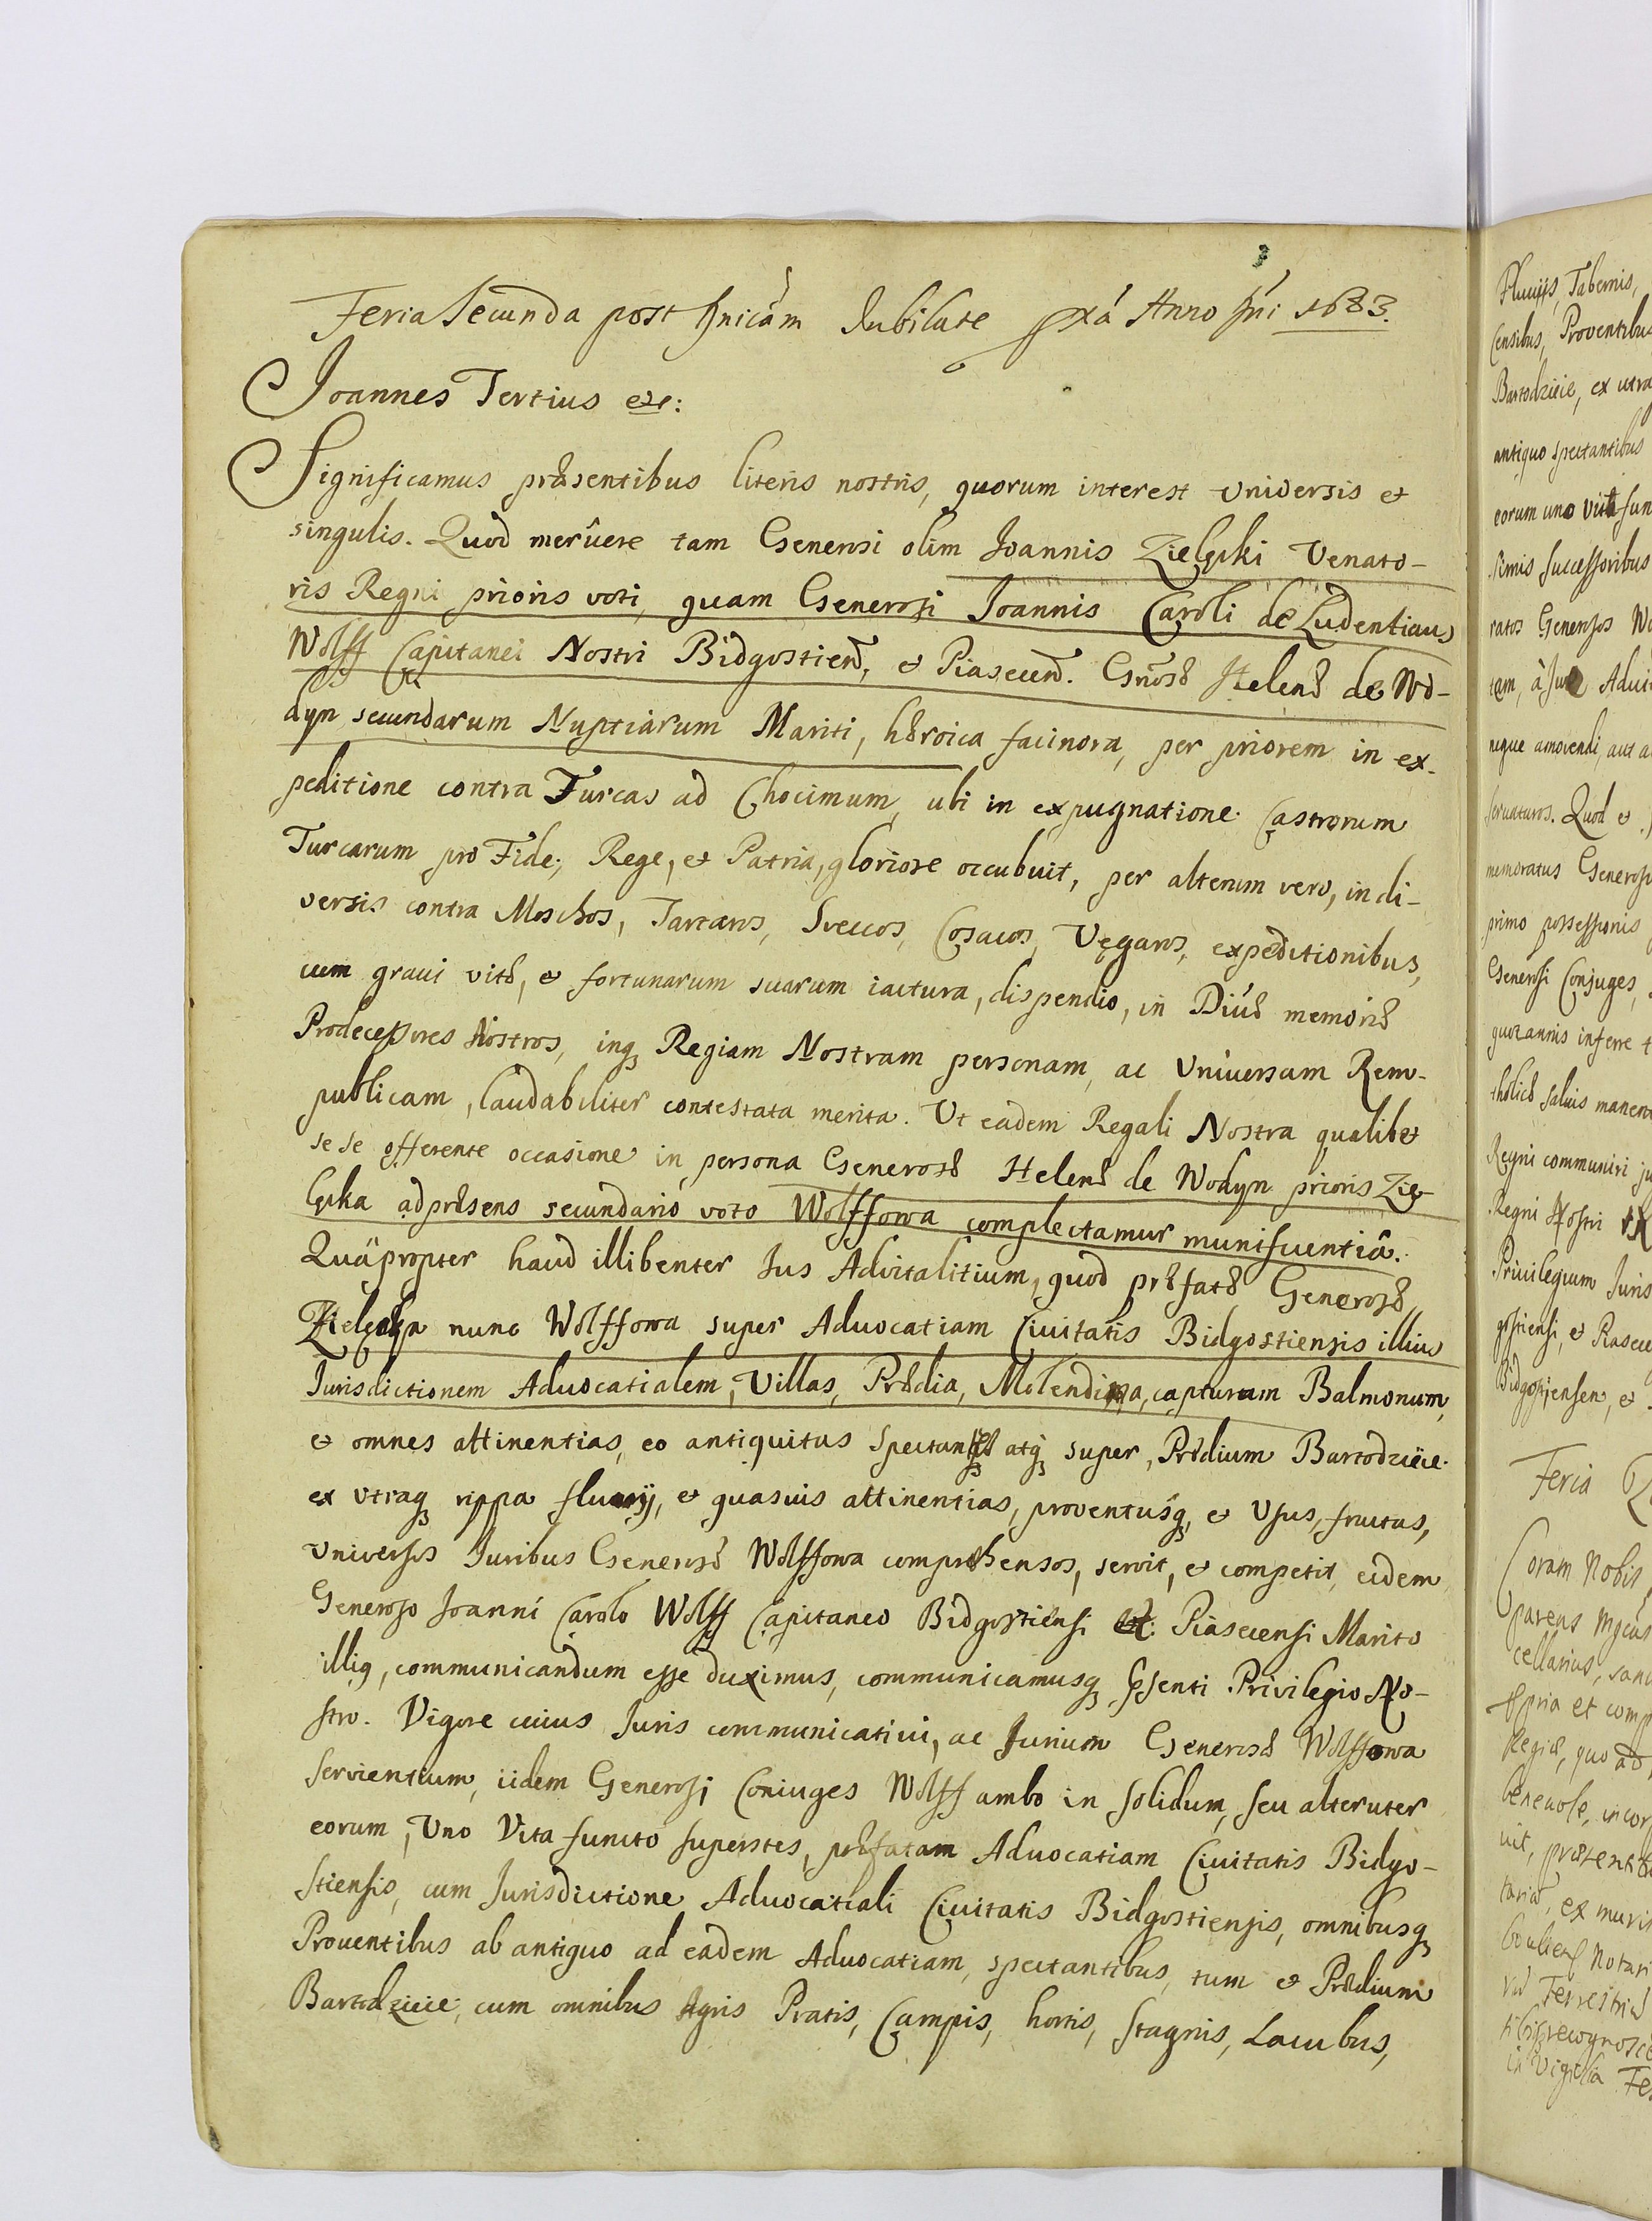 Feria Secunda post Dnicam Jubilate pxa Anno Dni 1683.
Joannes Tertius etc:
Significamus præsentibus literis nostris, quorum interest vniversis et
singulis. Quod meruere tam Generosi olim Joannis Zielęcki Venato-
ris Regni prioris voti, quam Generosi Joannis Caroli de Ludentiaus
Wolff Capitanei Nostri Bidgostien, et Piasecen. Gnosæ Helenæ de Wo-
dyn secundarum Nuptiarum Mariti, hæroica facinora, per priorem in ex-
peditione contra Turcas ad Chocimum, ubi in expugnatione Castrorum
Turcarum pro Fide, Rege, et Patria, gloriose occubuit, per alterum vero, in di-
versis contra Moschos, Tartaros, Sveccos, Cosacos, Vęgaros, expeditionibus,
cum graui vitæ, et fortunarum suarum iactura, dispendio, in Diuæ memoriæ
Prodecessores Nostros, inq Regiam Nostram personam, ac Vniuersam Rem-
publicam, laudabiliter contestata merita. Ut eadem Regali Nostra qualibet
se se offerente occasione in persona Generosæ Helenæ de Wodyn prioris Zie-
lęcka ad præsens secundario voto Wolffowa complectamur munificentiâ.
Quapropter haud illibenter Jus Advitalitium, quod præfatæ Generosæ
Zielęcka nunc Wolffowa super Aduocatiam Ciuitatis Bidgostiensis illius
Jurisdictionem Aduocatialem, Villas, Prædia, Molendina, capturam Balmonum,
et omnes attinentias, eo antiquitus spectantes atq super, Prædium Bartodzieie
ex vtraq rippa fluuij, et quasuis attinentias, proventusq, et Vsus, fructus,
vniversis Juribus Generosæ Wolffowa compræhensos, servit, et competit, eidem
Generoso Joanni Carolo Wolff Capitaneo Bidgostiensi et Piasecensi Marito
illiq, communicandum esse duximus, communicamusq Psenti Privilegio No-
stro. Vigore cuius Juris communicatiui, ac Jurium Generosæ Wolffowa
servientium, iidem Generosi Coniuges Wolff ambo in solidum, seu alteruter
eorum, Vno Vita functo superstes, præfatam Aduocatiam Ciuitatis Bidgo-
stiensis, cum Jurisdictione Aduocatiali Ciuitatis Bidgostiensis, omnibusq
Prouentibus ab antiquo ad eadem Aduocatiam, spectantibus, tum et Prædium
Bartodzieie, cum omnibus Agris Pratis, Campis, hortis, stagnis, Lacubus,
Fluuijs, Tabernis,
Censibus, Proventibus
Bartodzieie, ex utra
antiquo spectantibus
eorum uno vita fun
simis successoribus
ratos Generosos Wo
tem, à Jure Aduit
neque amovendi, aut a
servaturos. Quod et
memoratus Generosu
primo possessionis
Generosi Conjuges,
quotannis inferre t
tholicæ saluis manent
Regni communiri ju
Regni Nostri
Priuilegium Juris
gostiensi, et Piasece
Bidgostiensem, et
Feria
Coram Nobis
parens
cellarius, sanc
ppria et comp
Regiæ, quo ad
beneuole, in cor
uit, præsentib
tariæ, ex
Notari
Terrestriæ
recognosce
in Vigilia Fe